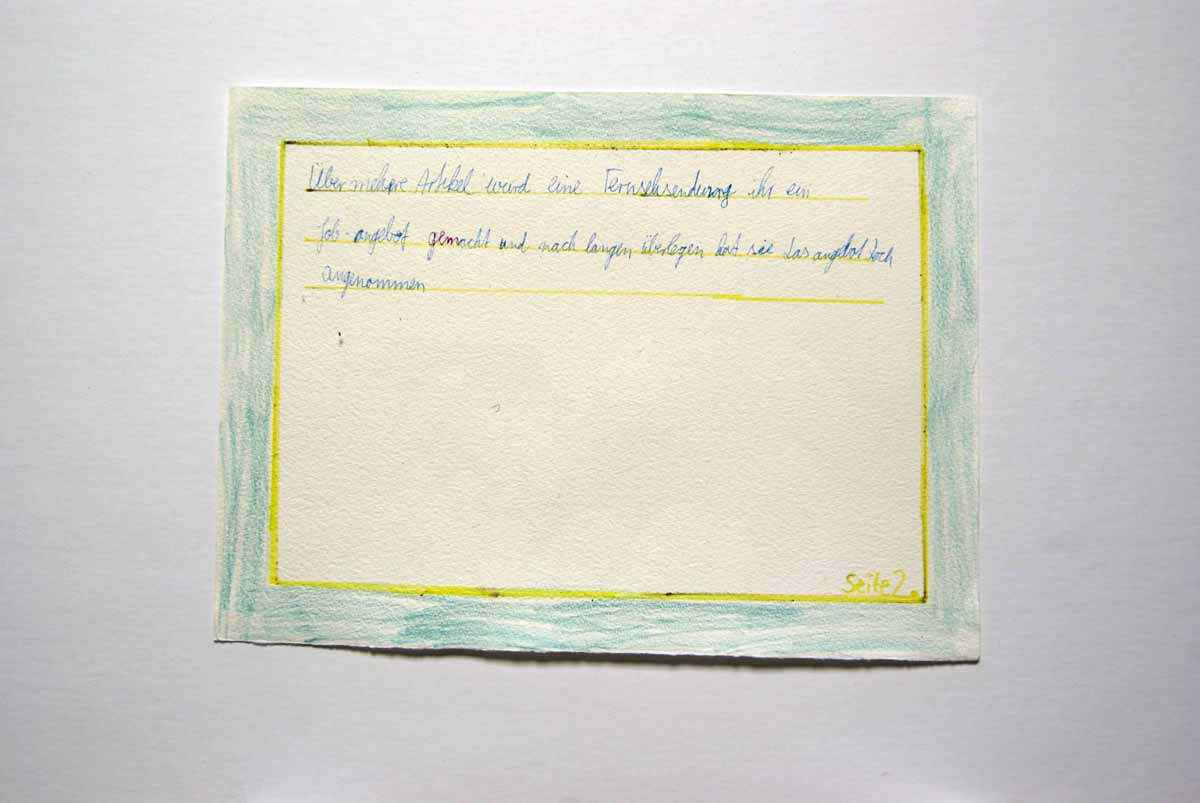 Über mehere Artikel weird eine Fernsehsendung ihr ein
Job-angebot gemacht und nach langen überlegen hat sie das angebot doch
angenommen
Seite 2.